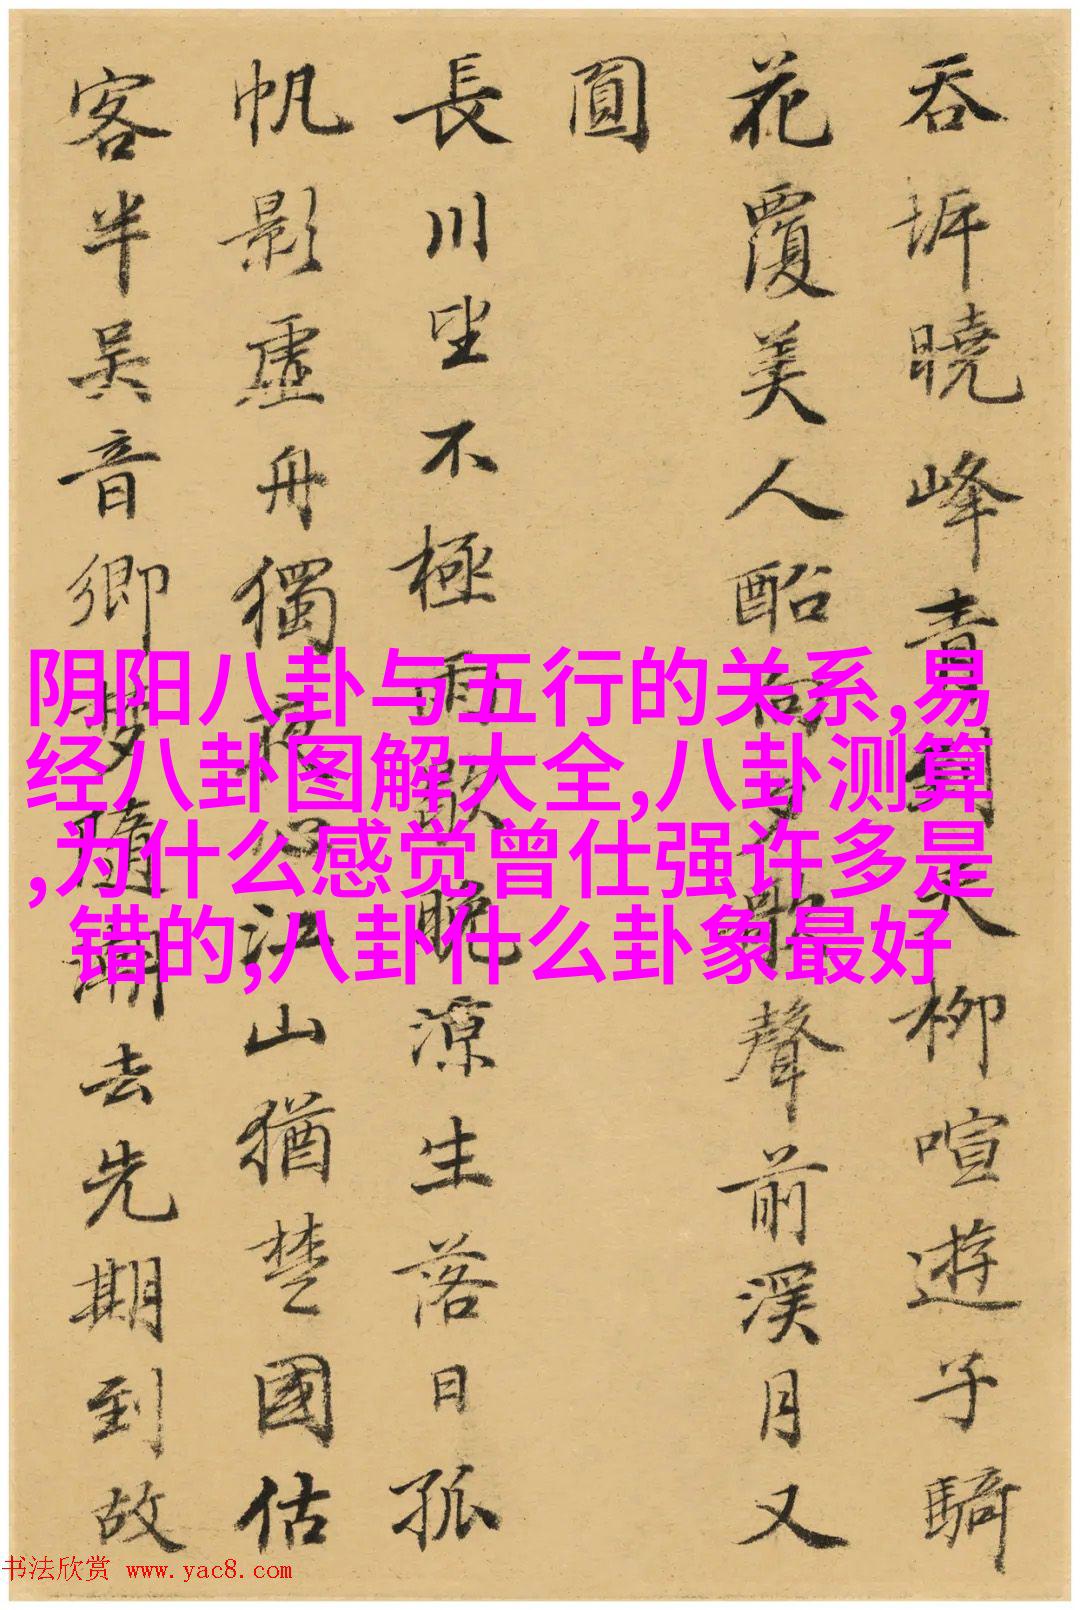 吞曉峰青天柳喧遊子騎
花覆美人向歌聲前溪月又
圓
長川望不極雨歇晚涼生落日孤
帆影虛舟獨夜心江山猶楚國估
客半吳音鄉夢隨潮去先期到故
阴阳八卦与五行的关系,易
经八卦图解大全,八卦测算
,为什么感觉曾仕强许多是
错的,八卦什么卦象最好
书法欣赏 www.yac8.com